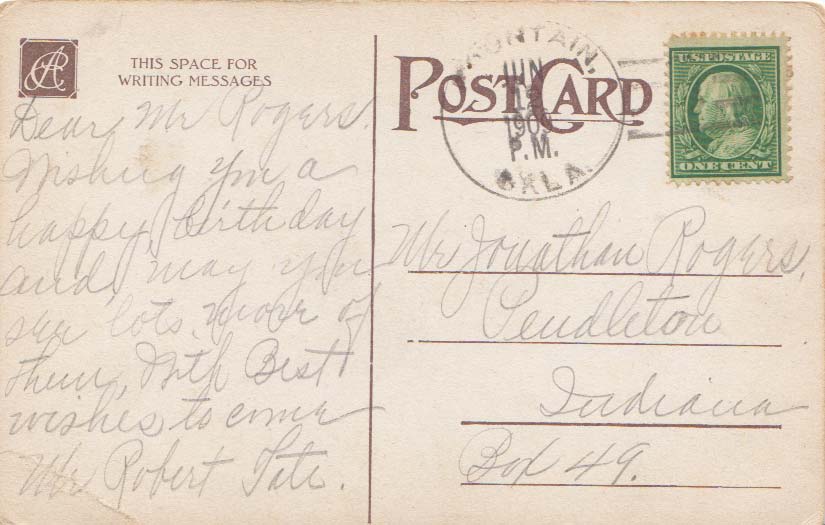 THIS SPACE FOR
WRITING MESSAGES
Dear Mr Rogers.
Wishing you a
happy birthday
and may you
see lots more of
them, With Best
wishes to come
Mr Robert Tate.
POST CARD
OUNTAIN,
JUN
1909
P.M.
OKLA.
U.S. POSTAGE
ONE CENT
Mr Jonathan Rogers,
Pendleton
Indiana
Box 49.